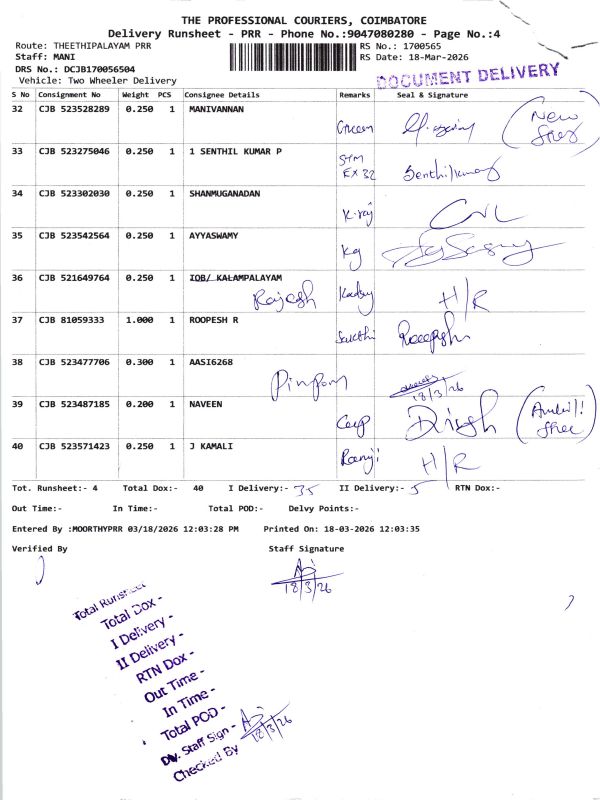 THE PROFESSIONAL COURIERS, COIMBATORE
Delivery Runsheet - PRR - Phone No.:9047080280 - Page No.:4
Route: THEETHIPALAYAM PRR RS No.: 1700565
Staff: MANI RS Date: 18-Mar-2026
DRS No.: DCJB170056504
Vehicle: Two Wheeler Delivery
DOCUMENT DELIVERY
S No Consignment No Weight PCS Consignee Details Remarks Seal & Signature
32 CJB 523528289 0.250 1 MANIVANNAN Green (New
33 CJB 523275046 0.250 1 1 SENTHIL KUMAR P STM EX 32 Senthilkumar
34 CJB 523302030 0.250 1 SHANMUGANADAN K-raj
35 CJB 523542564 0.250 1 AYYASWAMY Kg
36 CJB 521649764 0.250 1 IOB/ KALAMPALAYAM Rajesh H/R
37 CJB 81059333 1.000 1 ROOPESH R Sakthi Roopesh
38 CJB 523477706 0.300 1 AASI6268 18/3/26
39 CJB 523487185 0.200 1 NAVEEN
40 CJB 523571423 0.250 1 J KAMALI Ramji H/R
Tot. Runsheet:- 4 Total Dox:- 40 I Delivery:- 35 II Delivery:- 5 RTN Dox:-
Out Time:- In Time:- Total POD:- Delvy Points:-
Entered By :MOORTHYPRR 03/18/2026 12:03:28 PM Printed On: 18-03-2026 12:03:35
Verified By Staff Signature
18/3/26
Total Runsheet
Total Dox -
I Delivery -
II Delivery -
RTN Dox -
Out Time -
In Time -
Total POD -
Dly. Staff Sign - 18/3/26
Checked By